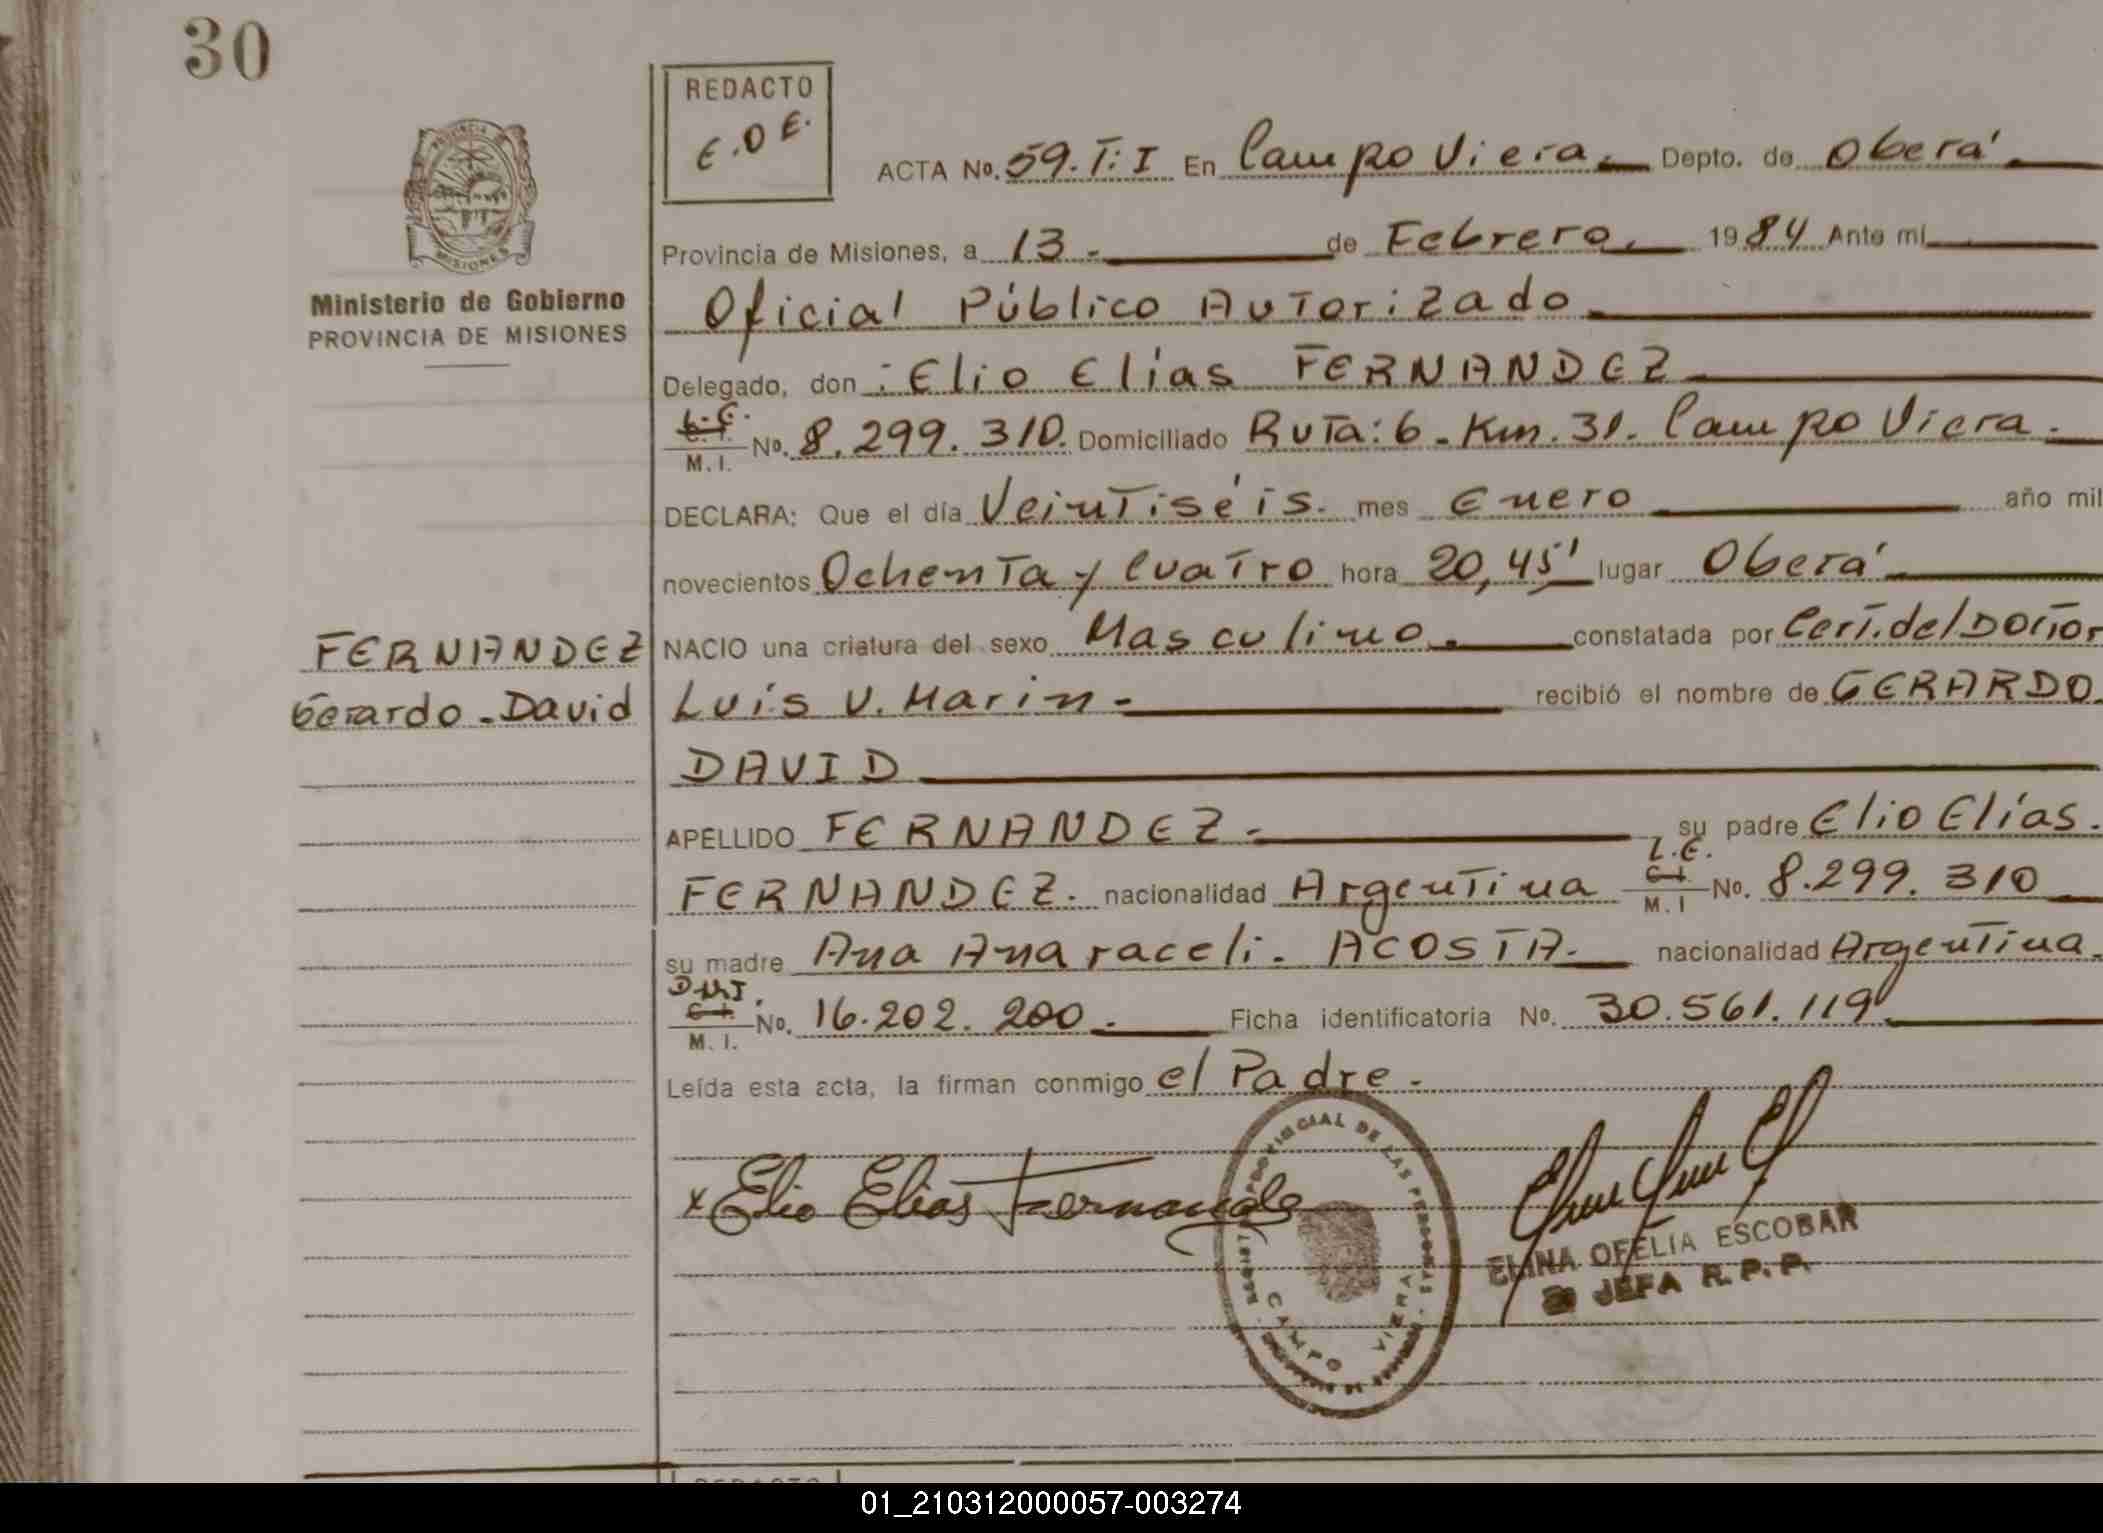 30
REDACTO
E.O.E.
PROVINCIA
MISIONES
Ministerio de Gobierno
PROVINCIA DE MISIONES
ACTA No. 59.T:I En Campo Viera. Depto. de Oberá
Provincia de Misiones, a 13.- de Febrero. 1984 Ante mí
Oficial Público Autorizado
Delegado, don : Elio Elías FERNANDEZ
L.E.
C.I.
M.I. No. 8.299.310. Domiciliado Ruta: 6. Km. 31. Campo Viera.
DECLARA: Que el día Veintiséis. mes Enero año mil
novecientos Ochenta y Cuatro hora 20,45' lugar Oberá
NACIO una criatura del sexo Masculino. constatada por Cert. del Doctor
Luis V. Marin.- recibió el nombre de GERARDO
DAVID
FERNANDEZ
Gerardo - David
APELLIDO FERNANDEZ.- su padre Elio Elías.
FERNANDEZ. nacionalidad Argentina L.E. C.I. M.I No. 8.299.310
su madre Ana Anaraceli. ACOSTA. nacionalidad Argentina.
D.N.I.
C.I.
M.I. No. 16.202.200. Ficha identificatoria No. 30.561.119
Leída esta acta, la firman conmigo el Padre.
x Elio Elias Fernandez
PROVINCIAL DE LAS PERSONAS
CAMPO VIERA
ELINA OFELIA ESCOBAR
JEFA R.P.P.
REDACTO
01_210312000057-003274